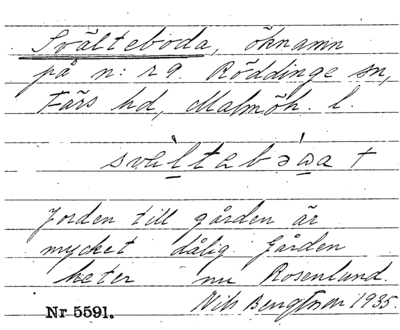 Svälteboda, öknamn
på n: r 9. Röddinge sn,
Färs hd, Malmöh. l.
Jorden till gården är
mycket dålig. Gården
heter nu Rosenlund.
Nils Bengtson 1935.
Nr 5591.